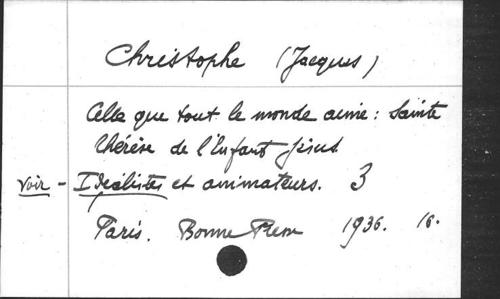 Christophe (Jacques)
Celle que tout le monde aime : Sainte
Thérèse de l'Enfant Jésus
Voir - Idéalistes et animateurs. 3
Paris. Bonne Presse 1936. 16.